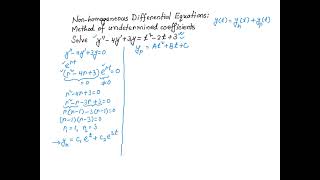 Non-homogeneous Differential Equations:
Method of undetermined coefficients
Solve y'' - 4y' + 3y = t² - 2t + 3
y(t) = y_h(t) + y_p(t)
y'' - 4y' + 3y = 0
e^{rt}
(r² - 4r + 3) e^{rt} = 0
= 0 ≠ 0
r² - 4r + 3 = 0
r² - r - 3r + 3 = 0
r(r-1) - 3(r-1) = 0
(r-1)(r-3) = 0
r₁ = 1, r₂ = 3
→ y_h = c₁ e^t + c₂ e^{3t}
y_p = At² + Bt + C